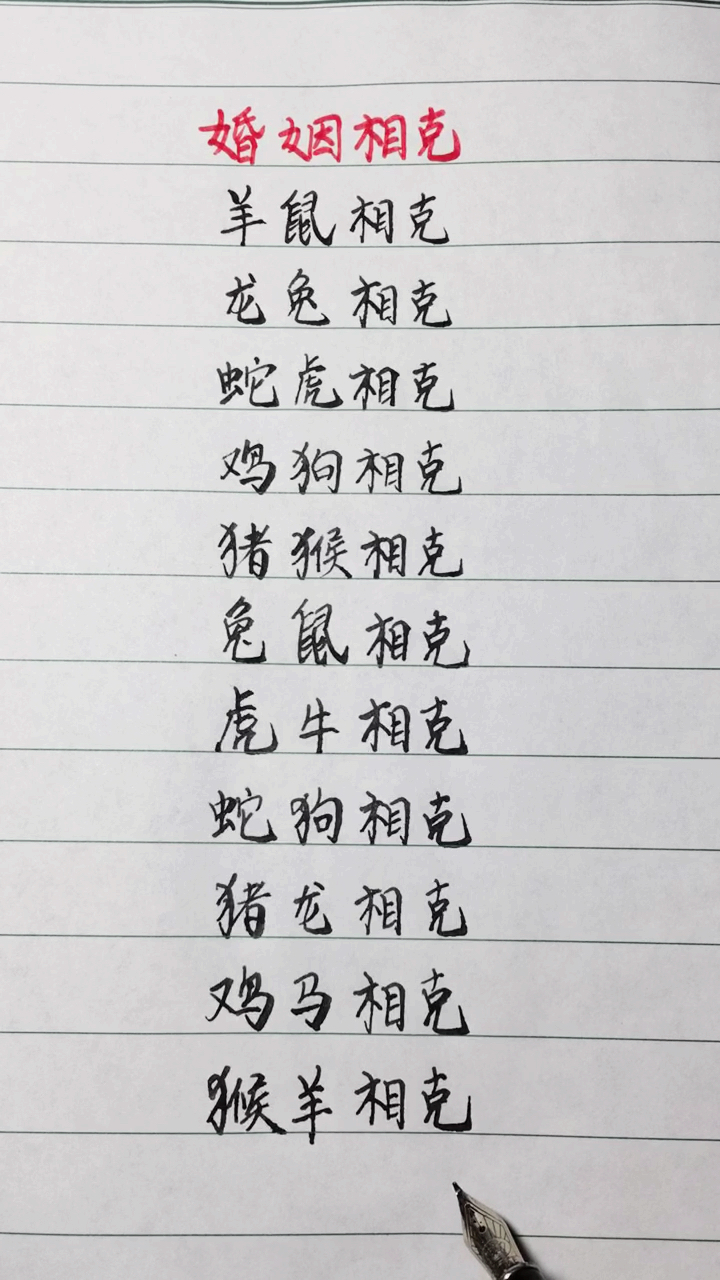 婚姻相克
羊鼠相克
龙兔相克
蛇虎相克
鸡狗相克
猪猴相克
兔鼠相克
虎牛相克
蛇狗相克
猪龙相克
鸡马相克
猴羊相克